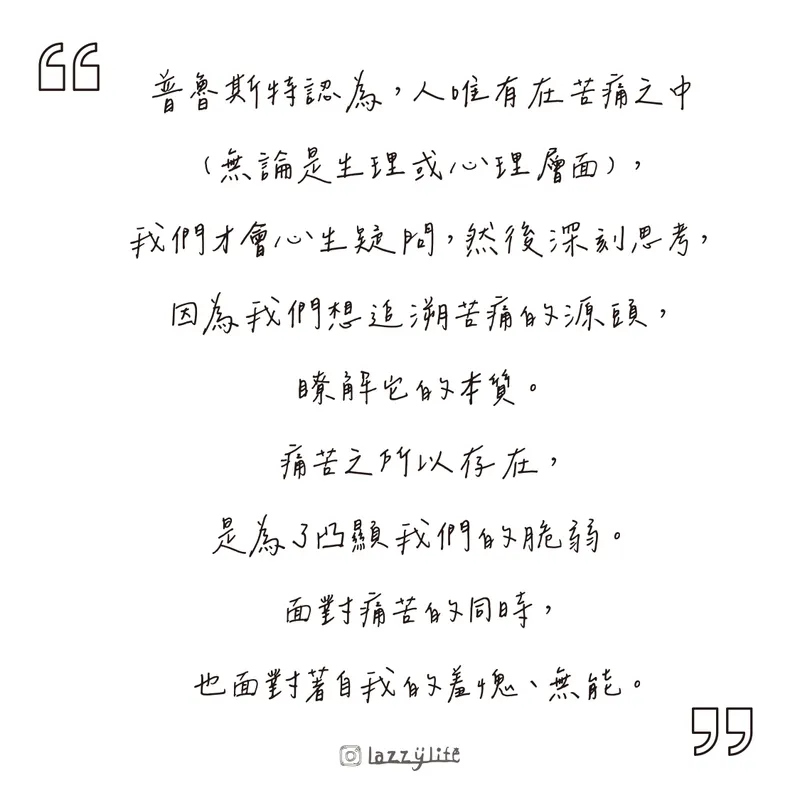 普魯斯特認為，人唯有在苦痛之中
（無論是生理或心理層面），
我們才會心生疑問，然後深刻思考，
因為我們想追溯苦痛的源頭，
瞭解它的本質。
痛苦之所以存在，
是為了凸顯我們的脆弱。
面對痛苦的同時，
也面對著自我的羞愧、無能。
lazzylife